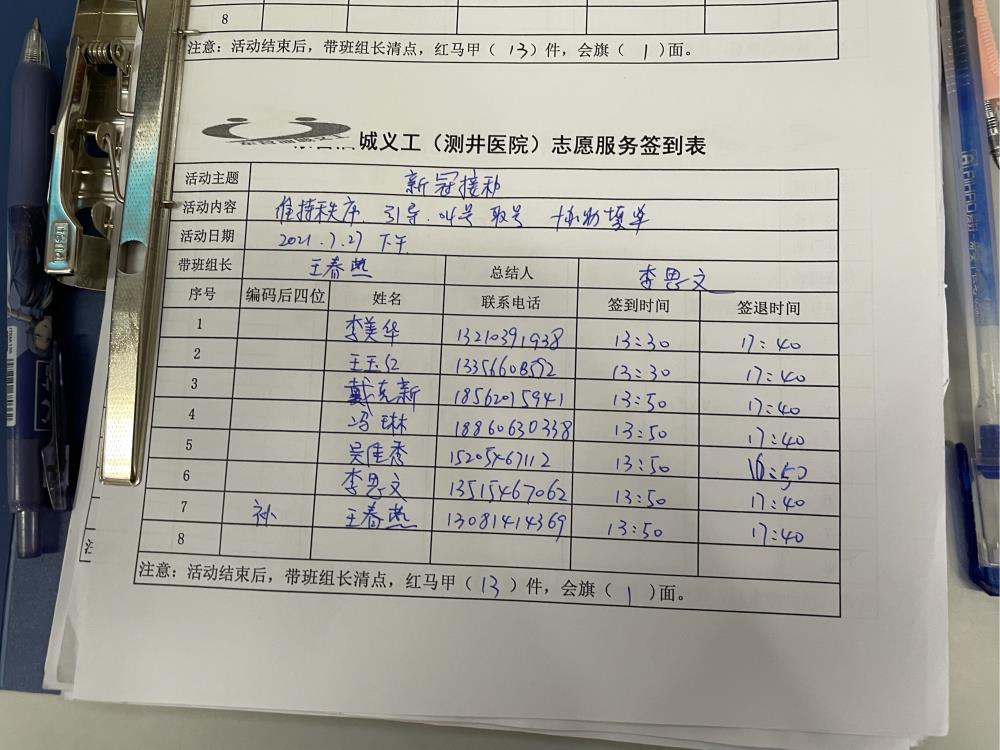 8
注意：活动结束后，带班组长清点，红马甲（13）件，会旗（1）面。
城义工（测井医院）志愿服务签到表
活动主题 新冠接种
活动内容 维持秩序、引导、叫号 取号 协助填单
活动日期 2021.7.27 下午
带班组长 王春燕 总结人 李思文
序号 编码后四位 姓名 联系电话 签到时间 签退时间
1 李美华 13210391938 13:30 17:40
2 王玉红 13356608592 13:30 17:40
3 戴克新 18562015941 13:50 17:40
4 冯琳 18860630338 13:50 17:40
5 吴佳秀 15205467112 13:50 16:50
6 李思文 13515467062 13:50 17:40
7 补 王春燕 13081414369 13:50 17:40
8
注意：活动结束后，带班组长清点，红马甲（13）件，会旗（1）面。
注